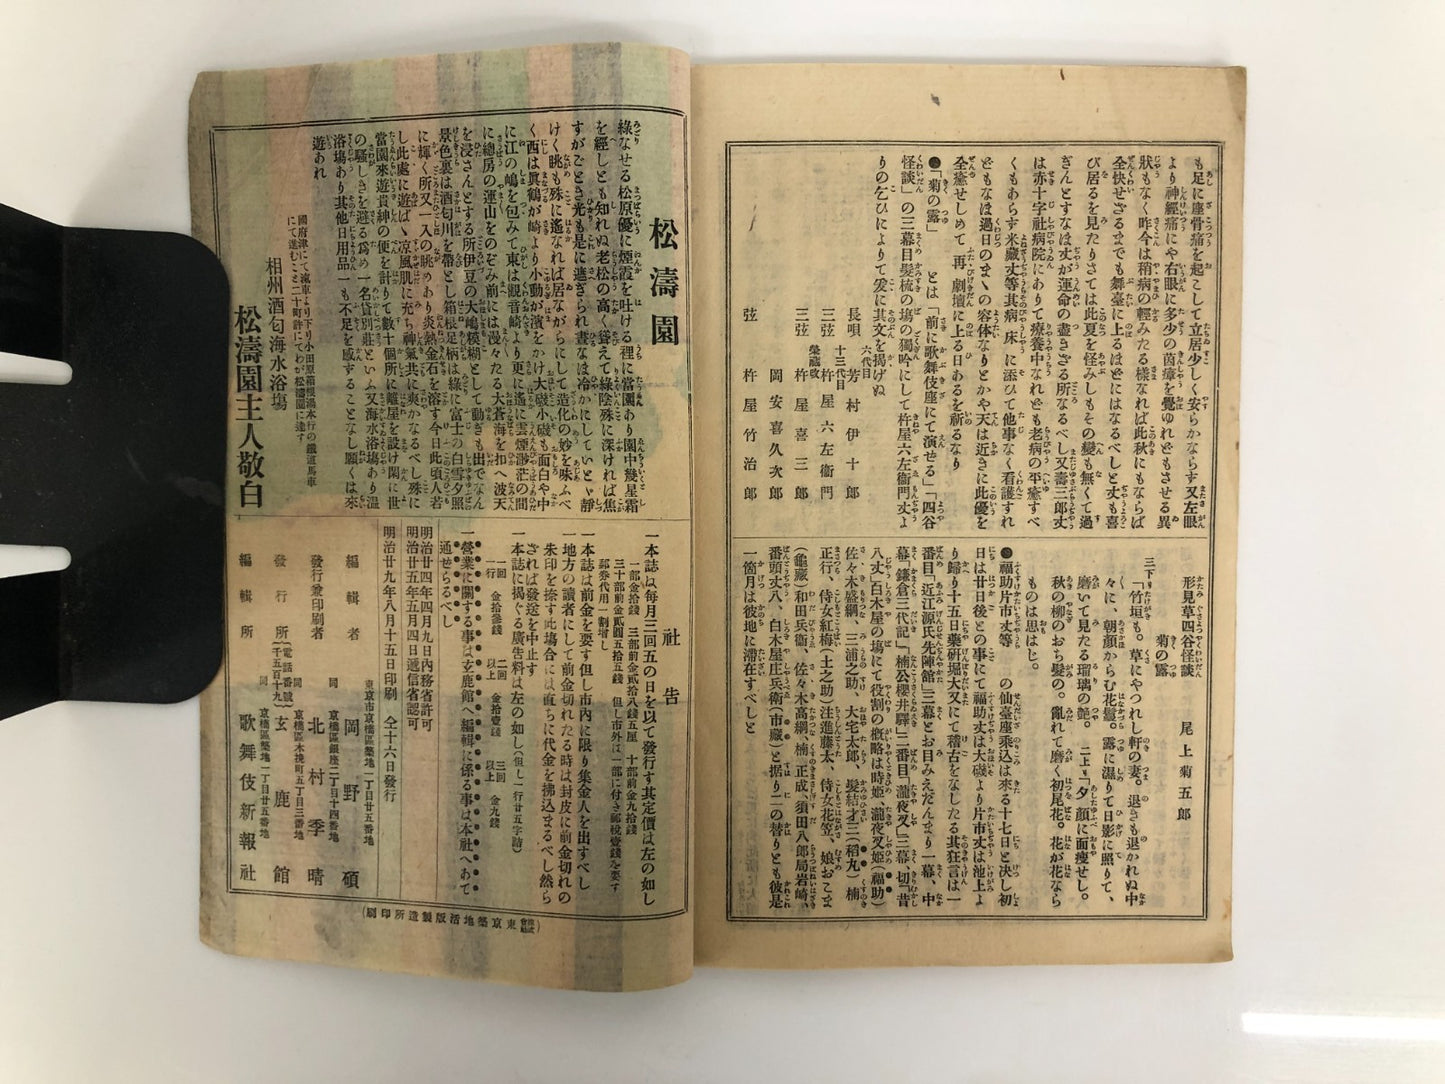 も足に座骨痛を起こして立居少しく安らかならす又左眼
より神經痛にや右眼に多少の茵瘴を覺ゆれどもさせる異
狀もなく昨今は稍病の輕みたる樣なれば此秋にもならば
全快せざるまでも舞臺に上るほどにはなるべしと丈も喜
び居るを見たりさては此夏を怪みしもその變も無くて過
ぎんとすなほ丈が運命の盡きざる所なるべし又壽三郎丈
は赤十字社病院にありて療養中なれども老病の平癒すべ
くもあらず米藏丈等其病床に添ひて他事なく看護すれ
どもなほ過日のまゝの容体なりとかや天は近きに此優を
全癒せしめて再び劇壇に上る日あるを祈るなり
●「菊の露」 とは「前に歌舞伎座にて演せる」「四谷
怪談」の三幕目髮梳の塲の獨吟にして杵屋六左衞門丈よ
りの乞ひによりて爰に其文を揭げぬ
長唄 六代目 芳村伊十郎
三弦 十三代目 杵屋六左衞門
岡安喜久次郎
三弦 榮藏改 杵屋喜三郎
弦 杵屋竹治郎
形見草四谷怪談 尾上菊五郎
菊の露
三下リ「竹垣も。草にやつれし軒の妻。退きも退かれぬ中
々に、朝顏からむ花鬘。露に濕りて日影に照りて、
磨いて見たる瑠璃の艶。 二上リ「夕顏に面瘦せし。
秋の柳のおち髮の。亂れて磨く初尾花。花が花なら
ものは思はじ。
●福助片市丈等 の仙臺座乘込は來る十七日と決し初
日は廿日後との事にて福助丈は大磯より片市丈は池上よ
り歸り十五日藥硏堀大又にて稽古をなしたる其狂言は一
番目「近江源氏先陣館」三幕とお目みえだんまり一幕、中
幕「鎌倉三代記」「楠公櫻井驛」二番目「瀧夜叉」三幕、切「昔
八丈」百木屋の塲にて役割の槪略は時姬、瀧夜叉姬（福助）
佐々木盛綱、三浦之助、大宅太郎、髮結才三（稻丸）楠
正行、侍女紅梅（土之助）注進藤太、侍女花笠、娘おこま
（龜藏）和田兵衞、佐々木高綱、楠正成、須田八郎局岩崎、
番頭丈八、白木屋庄兵衞（市藏）と据り二の替りとも彼是
一箇月は彼地に滯在すべしと
松濤園
綠なせる松原優に煙霞を吐ける裡に當園あり園中幾星霜
を經しとも知れぬ老松の高く聳えて綠陰殊に深ければ焦
すがごとき光も是に遮ぎられ晝なほ冷かにしていとゞ靜
けく眺も殊に遙なれば居ながらにして造化の妙を味ふべ
く西は眞鶴が崎より小動が濱をかけ大磯小磯も面白や中
に江の嶋を包みて東は觀音崎より更に遙に雲煙渺茫の間
に總房の連山をのぞみ前には漫々たる大蒼海を扣へ波天
を浸さんとする所伊豆の大嶋糢糊として動ぎも出でなん
景色裏は酒匂川を帶とし箱根足柄は綠に富士の白雪夕照
に輝く所又一入の眺めあり炎熱金石を溶す今日此頃人若
し此處に遊ばゝ凉風肌に充ち神氣共に爽かなるべし殊に
當園來遊貴紳の便を計りて數十個所に離屋を設け閑に世
の騷しきを避る爲め一名貸別莊といふ又海水浴塲あり温
浴塲あり其他日用品一も不足を感することなし願くは來
遊あれ
國府津にて滊車より下り小田原箱根湯本行の鐵道馬車
にて進むこと二十町許にてわが松濤園に達す
相州酒匂海水浴塲
松濤園主人敬白
社告
一本誌は每月三回五の日を以て發行す其定價は左の如し
一部金拾錢 三部前金貳拾八錢五厘 十部前金九拾錢
三十部前金貳圓五拾五錢 但し市外は一部に付き郵稅壹錢を要す
郵券代用一割增し
一本誌は前金を要す但し市內に限り集金人を出すべし
一地方の讀者にして前金切れたる時は封皮に前金切れの
朱印を捺す此塲合には直ちに代金を拂込まるべし然ら
ざれば發送を中止す
一本誌に揭ぐる廣告料は左の如し（但し一行廿五字詰）
一回一行 金拾參錢 二回以上 金拾壹錢 三回以上 金九錢
一營業に關する事は玄鹿館へ編輯に係る事は本社へあて
通せらるべし
明治廿四年四月九日內務省許可
明治廿五年五月四日遞信省認可
明治廿九年八月十五日印刷 仝十六日發行
東京市京橋區築地二丁目廿五番地
編輯者 岡野碩
同 京橋區銀座二丁目十四番地
發行兼印刷者 北村季晴
同 京橋區木挽町五丁目三番地
發行所（電話番號 千五百十九） 玄鹿館
同 京橋區築地二丁目廿五番地
編輯所 歌舞伎新報社
（株式會社東京築地活版製造所印刷）